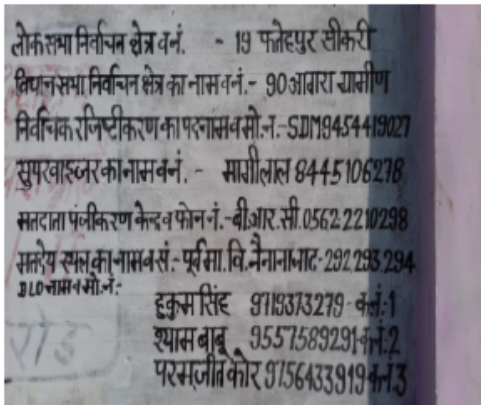 लोकसभा निर्वाचन क्षेत्र व नं. - 19 फतेहपुर सीकरी
विधानसभा निर्वाचन क्षेत्र का नाम व नं.- 90 आगरा ग्रामीण
निर्वाचक रजिष्टीकरण का पदनाम व मो.नं.-SDM9454419027
सुपरवाइजर का नाम व नं. - मांगीलाल 8445106278
मतदाता पंजीकरण केन्द्र व फोन नं.-बी.आर.सी.0562 2210298
मतदेय स्थल का नाम व सं.- पूर्व मा.वि.नैनाना जाट-292,293,294
BLO नाम व मो.नं:-
हुकुम सिंह 9719373279- क.नं:1
श्याम बाबू 9557589291-क.नं:2
परमजीत कोर 9756433919 क.नं:3
रोड